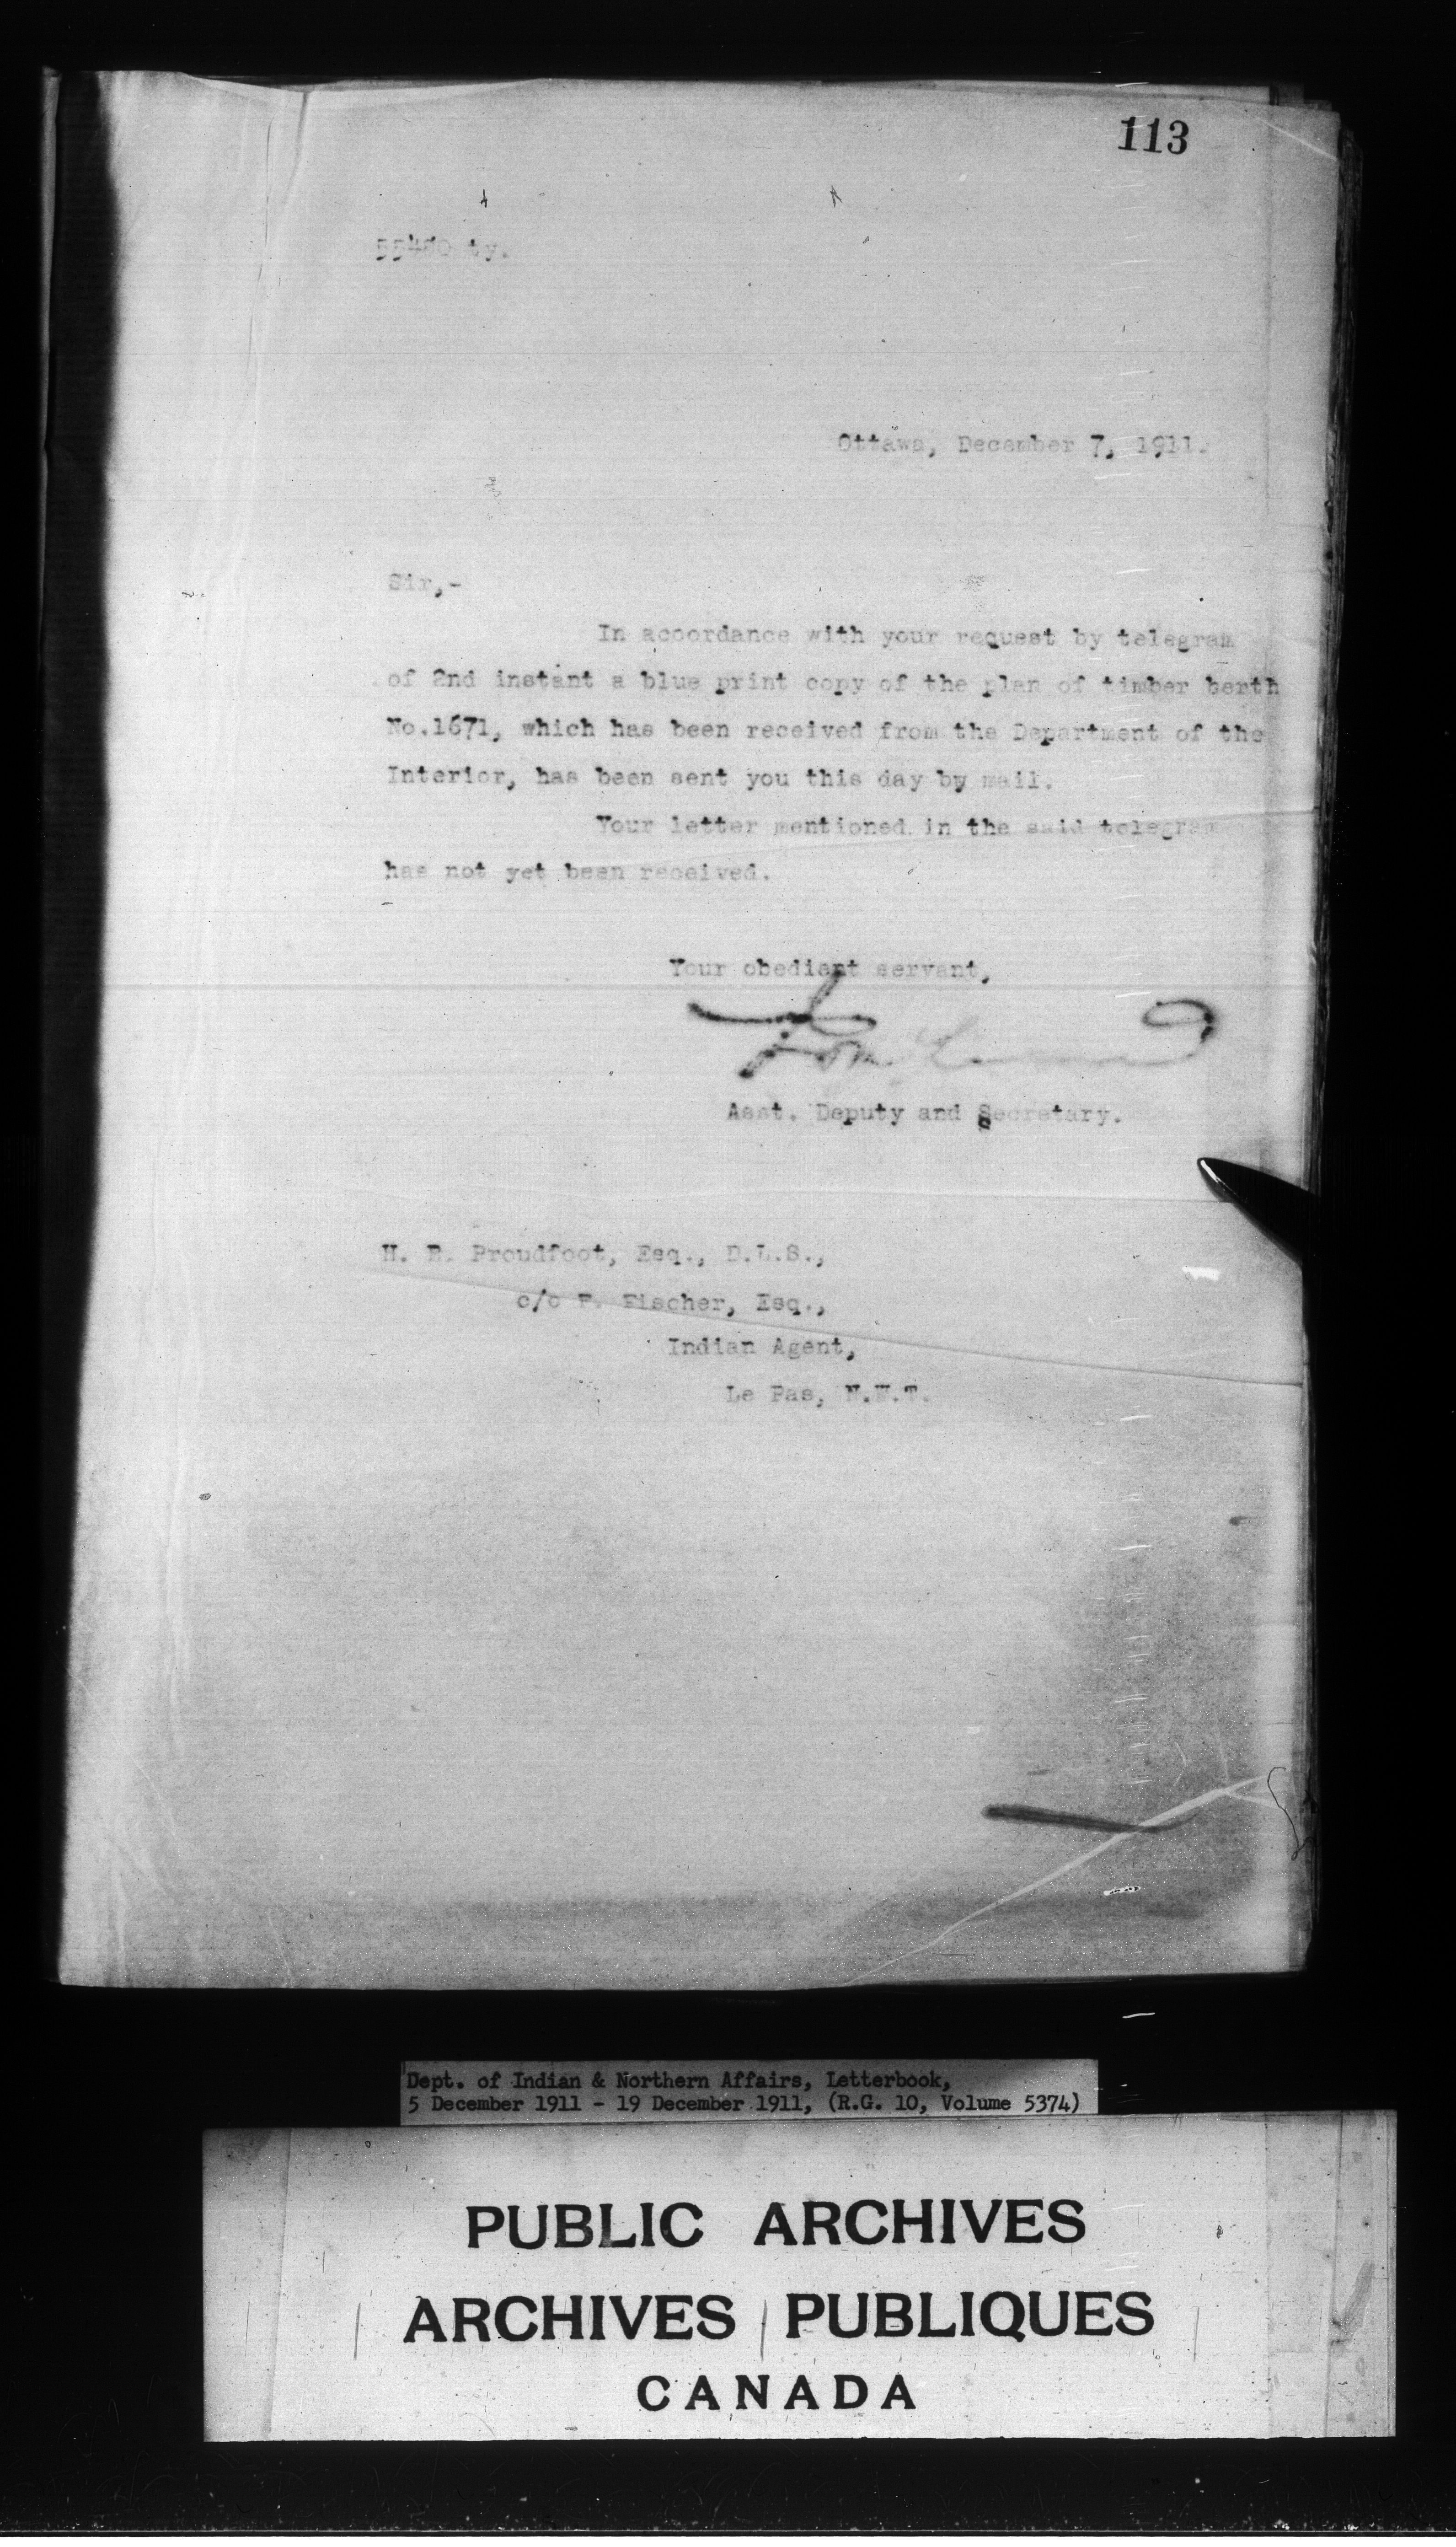 113
Ottawa, December 7, 1911.
Sir,-
In accordance with your request by telegram
of 2nd instant a blue print copy of the plan of timber berth
No.1671, which has been received from the Department of the
Interior, has been sent you this day by mail.
Your letter mentioned in the said telegram
has not yet been received.
Your obedient servant,
Asst. Deputy and Secretary.
H. B. Proudfoot, Esq., D.L.S.,
c/o F. Fischer, Esq.,
Indian Agent,
Le Pas, N.W.T.
Dept. of Indian & Northern Affairs, Letterbook,
5 December 1911 - 19 December 1911, (R.G. 10, Volume 5374)
PUBLIC ARCHIVES
ARCHIVES PUBLIQUES
CANADA